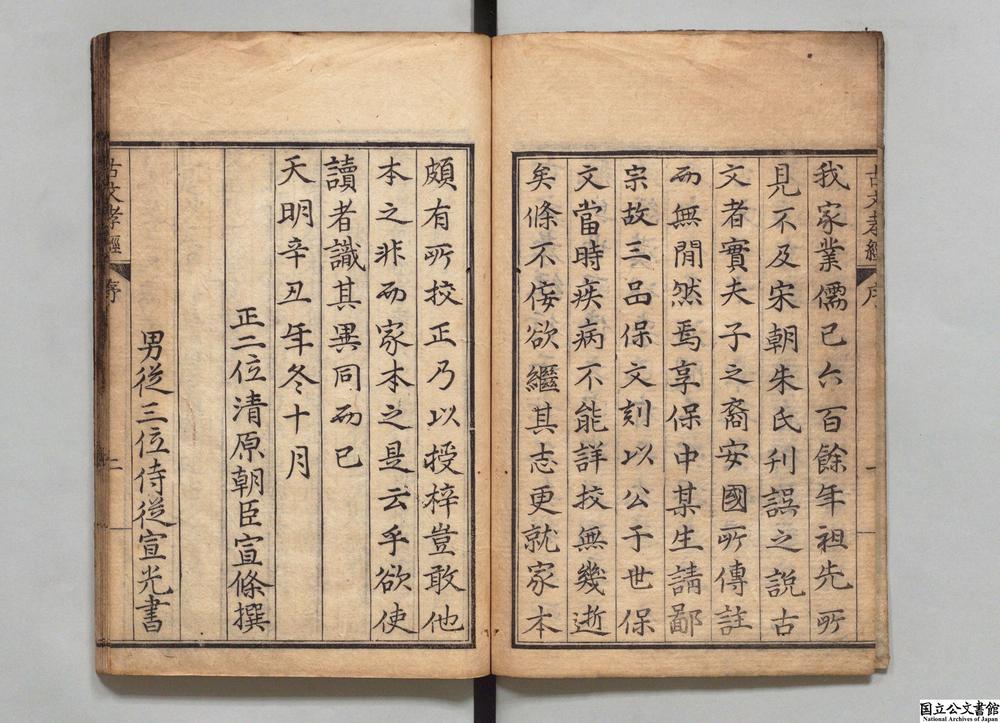 古文孝經
序
一
我家業儒已六百餘年祖先所
見不及宋朝朱氏刋誤之說古
文者實夫子之裔安國所傳註
而無閒然焉享保中某生請鄙
宗故三品保文刻以公于世保
文當時疾病不能詳挍無幾逝
矣條不侫欲繼其志更就家本
頗有所挍正乃以授梓豈敢他
本之非而家本之是云乎欲使
讀者識其異同而已
天明辛丑年冬十月
正二位清原朝臣宣條撰
男從三位侍從宣光書
古文孝經
序
二
国立公文書館
National Archives of Japan